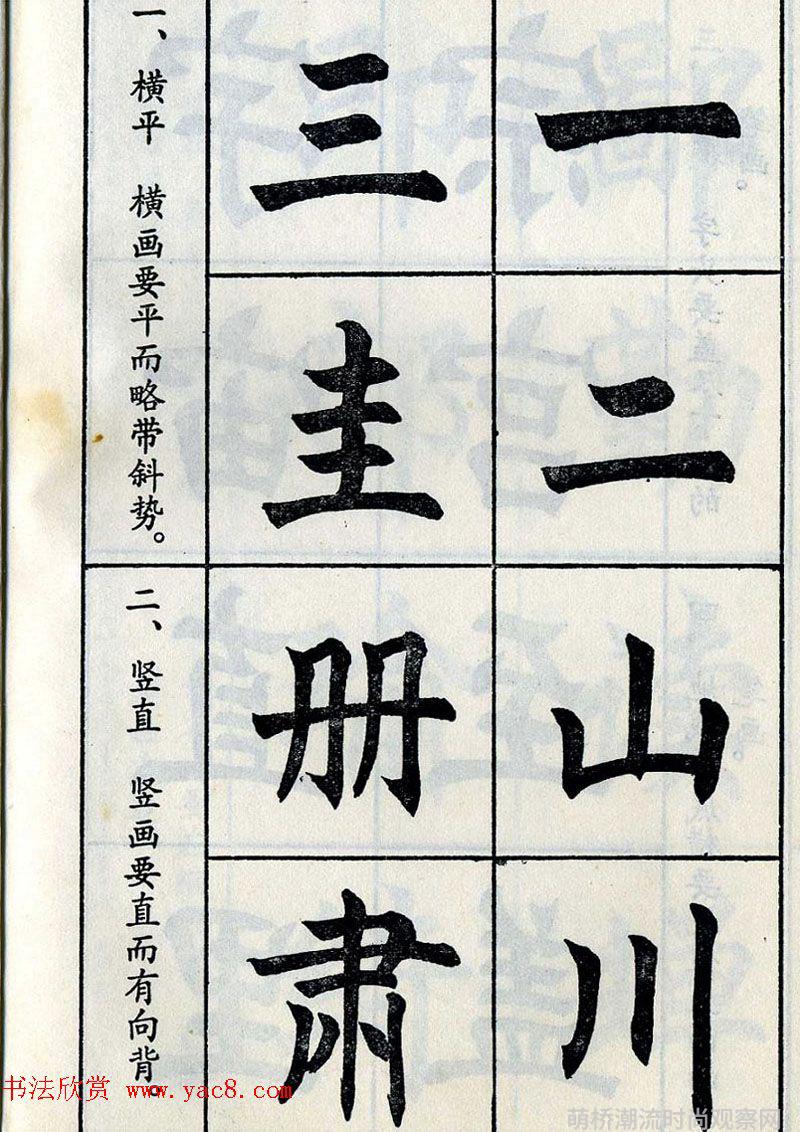 一
二
三
圭
一、横平 横画要平而略带斜势。
山
川
册
肃
二、竖直 竖画要直而有向背。
书法欣赏 www.yac8.com
萌桥潮流时尚观察网